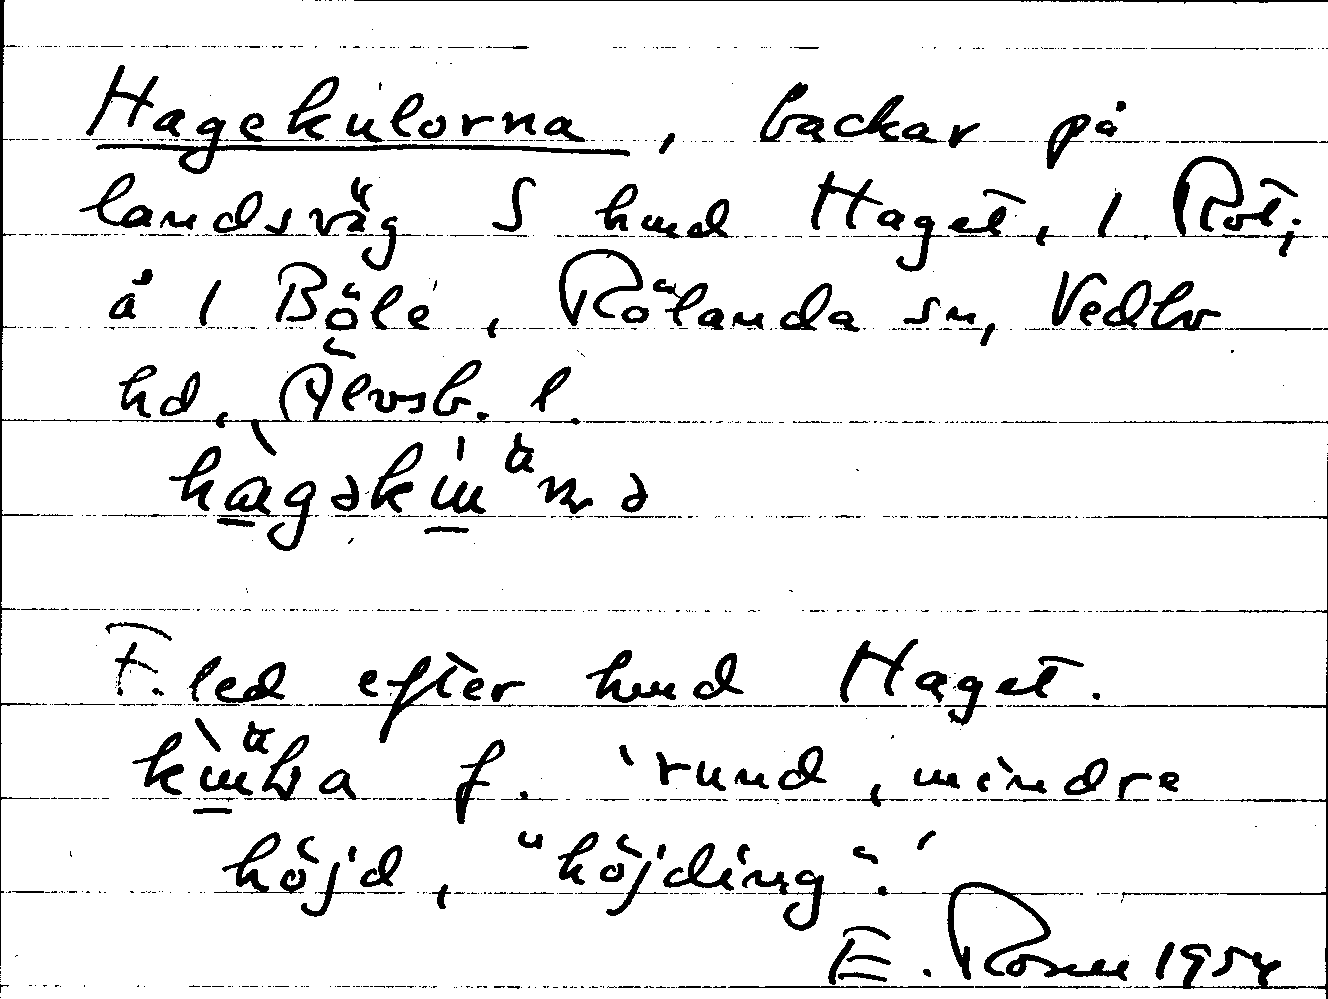 Hagekulorna, backar på
landsväg S hmd Haget, 1 Röt;
å 1 Böle, Rölanda sn, Vedbo
hd, Älvsb. l.
F.led efter hmd Haget.
f. 'rund, mindre
höjd, "höjding".'
E. Rosell 1954